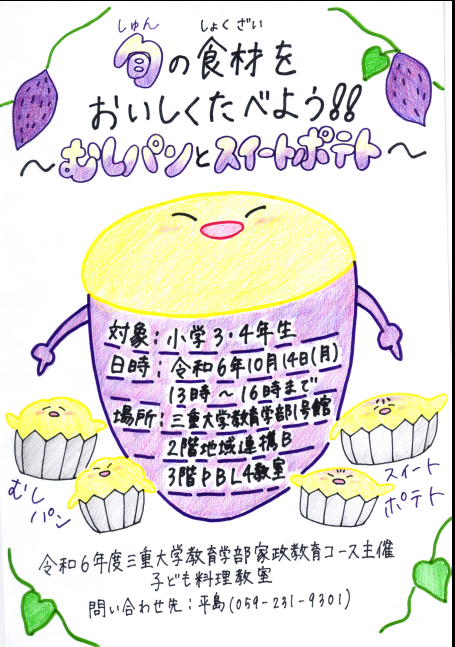 しゅん しょくざい
旬の食材を
おいしくたべよう!!
～むしパンとスイートポテト～
対象:小学3・4年生
日時:令和6年10月14日(月)
13時～16時まで
場所:三重大学教育学部1号館
2階地域連携B
3階PBL4教室
むし
パン
スイート
ポテト
令和6年度三重大学教育学部家政教育コース主催
子ども料理教室
問い合わせ先:平島(059-231-9301)